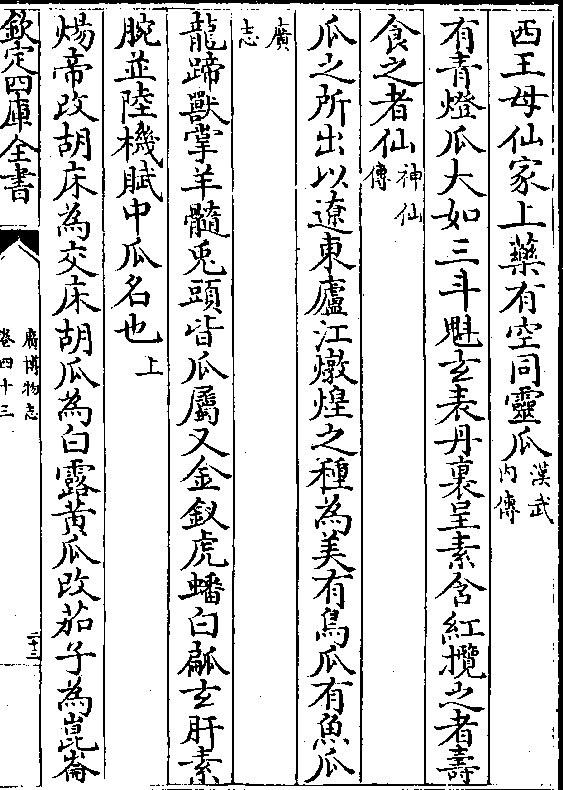 西王母仙家上藥有空同靈瓜漢武內傳
有青燈瓜大如三斗魁玄表丹裏呈素含紅攬之者壽
食之者仙神仙傳
瓜之所出以遼東廬江燉煌之種為美有烏瓜有魚瓜
廣志
龍蹄獸掌羊髓兎頭皆瓜屬又金釵虎蟠白瓤玄肝素
腕並陸機賦中瓜名也上
煬帝改胡床為交床胡瓜為白露黄瓜改茄子為崑崙
欽定四庫全書
廣博物志
卷四十三
二十三